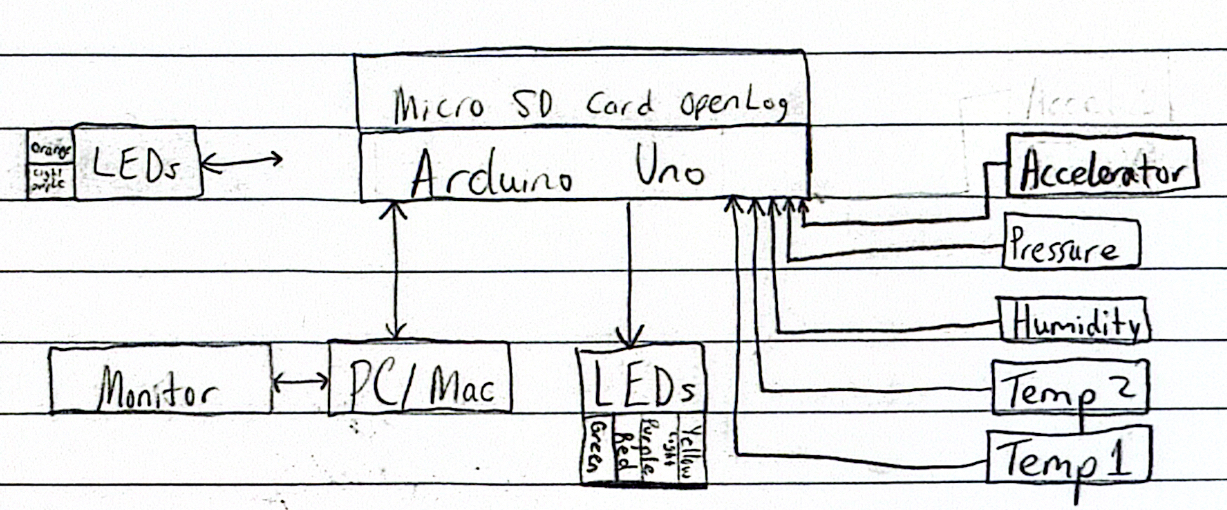 Micro SD Card OpenLog
Arduino Uno
Orange
Light
purple
LEDs
Accelerator
Pressure
Humidity
Temp 2
Temp 1
Monitor
PC/Mac
LEDs
Green
Red
Purple
Light
Yellow